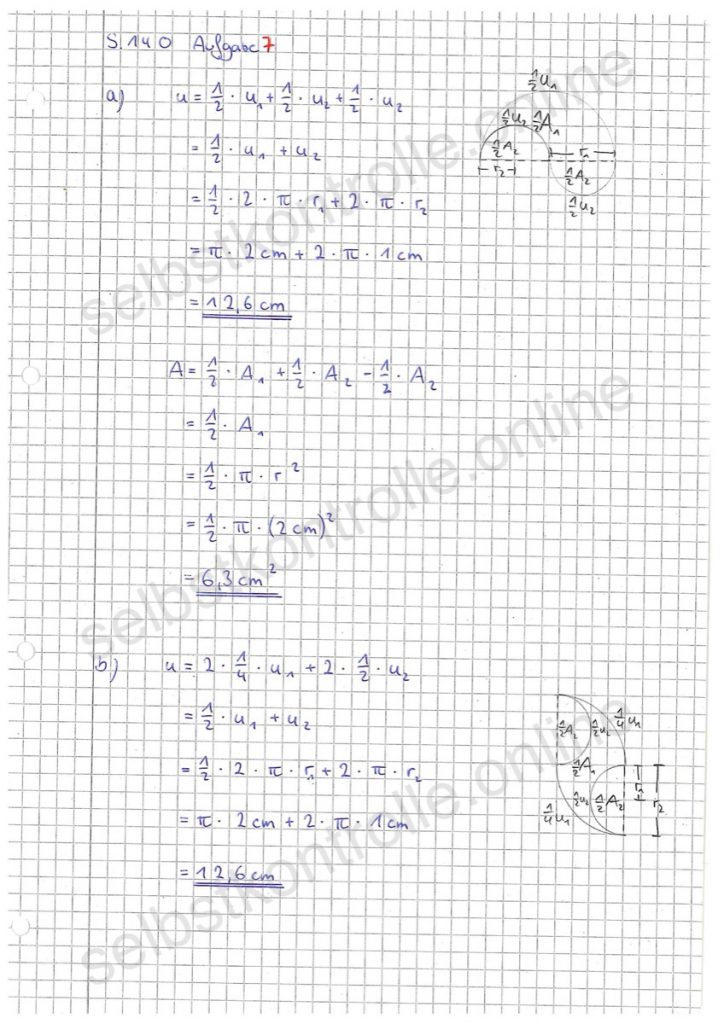 S. 140 Aufgabe 7
a) u = 1/2 · u₁ + 1/2 · u₂ + 1/2 · u₂
= 1/2 · u₁ + u₂
= 1/2 · 2 · π · r₁ + 2 · π · r₂
= π · 2 cm + 2 · π · 1 cm
= 12,6 cm
1/2 u₁
1/2 u₂ 1/2 A₁
1/2 A₂ r₁
r₂ 1/2 A₂
1/2 u₂
A = 1/2 · A₁ + 1/2 · A₂ - 1/2 · A₂
= 1/2 · A₁
= 1/2 · π · r²
= 1/2 · π · (2 cm)²
= 6,3 cm²
b) u = 2 · 1/4 · u₁ + 2 · 1/2 · u₂
= 1/2 · u₁ + u₂
= 1/2 · 2 · π · r₁ + 2 · π · r₂
= π · 2 cm + 2 · π · 1 cm
= 12,6 cm
1/2 A₂ 1/2 u₂ 1/4 u₁
1/2 A₁ r₁ r₂
1/2 u₂ 1/2 A₂
1/4 u₁
selbstkontrolle.online
selbstkontrolle.online
selbstkontrolle.online